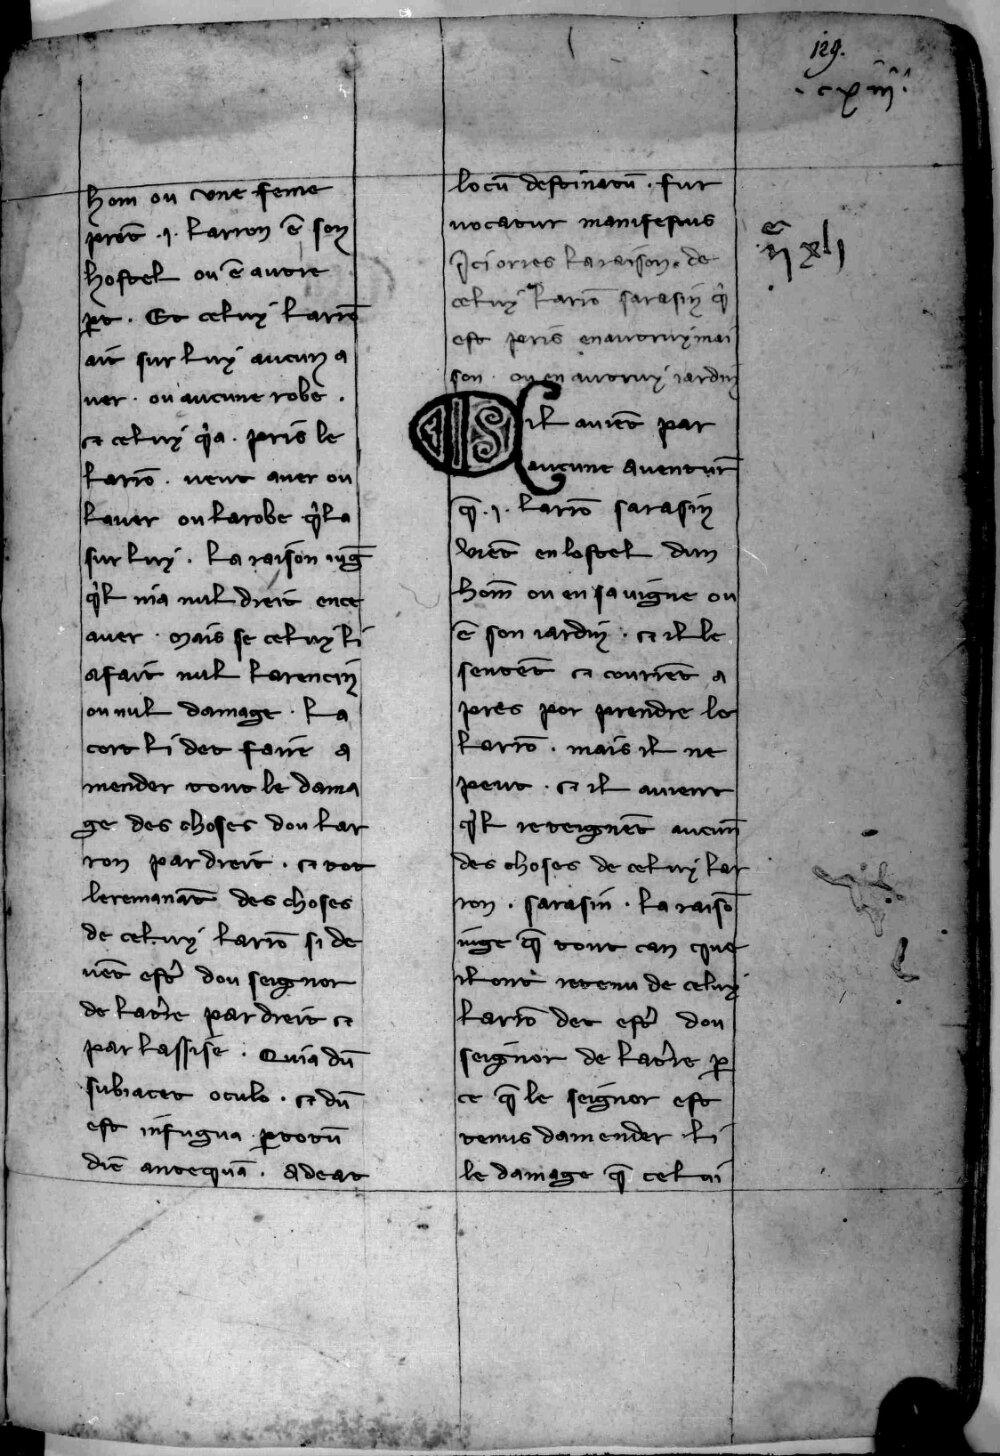 129.
.cxiiij.
hom ou vne feme
prẽt .j. larron ẽ son
hostel ou ẽ autre
ꝑt . Et celuy larrõ
ait sur luy aucun a
uer . ou aucune robe .
et celuy q̇ a . pris le
larrõ . veut auer ou
lauer ou la robe q̇l a
sur luy . la raison iuge
q̇l ni a nul dreit en ce
auer . Mais se celuy li
a fait nul larencin
ou nul damage . La
cort li det faire a
mender tout le dama
ge des choses dou lar
ron par dreit . et tot
le remanãt des choses
de celuy larrõ si de
uẽt estr̃ dou seignor
de la tr̃re par dreit et
par lassise . Quia dũ
subiacet oculo . et dũ
est in fuga ꝑ totũ
diẽ antequã . adeat
locũ destinatũ . fur
uocatur manifestus
Ici orres la raison . de
celuy larrõ sarasin q̇
est pris en autruy mai
son . ou en autruy iardin
SIl auiẽt par
aucune auentur̃
q̃ .j. larrõ sarasin
viẽt en lostel dun
hom̃ ou en sa uigne ou
ẽ son iardin . et il le
sentẽt et courrẽt a
pres por prendre le
larrõ . mais il ne
peut . et il auient
q̇l reteignẽt aucun̄
des choses de celuy lar
ron . sarasin . la raisõ
iuge q̃ tout can que
il ont retenu de celuy
larrõ det estr̃ dou
seignor de la tr̃re ꝑ
ce q̃ le seignor est
tenus damender li
le damage q̃ celui